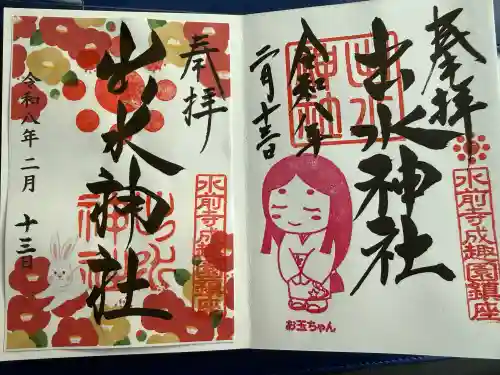 奉拝
出水神社
令和八年二月 十三日
水前寺成趣園鎮座
出水神社
奉拝
出水神社
令和八年
二月十三日
水前寺成趣園鎮座
出水神社
お玉ちゃん